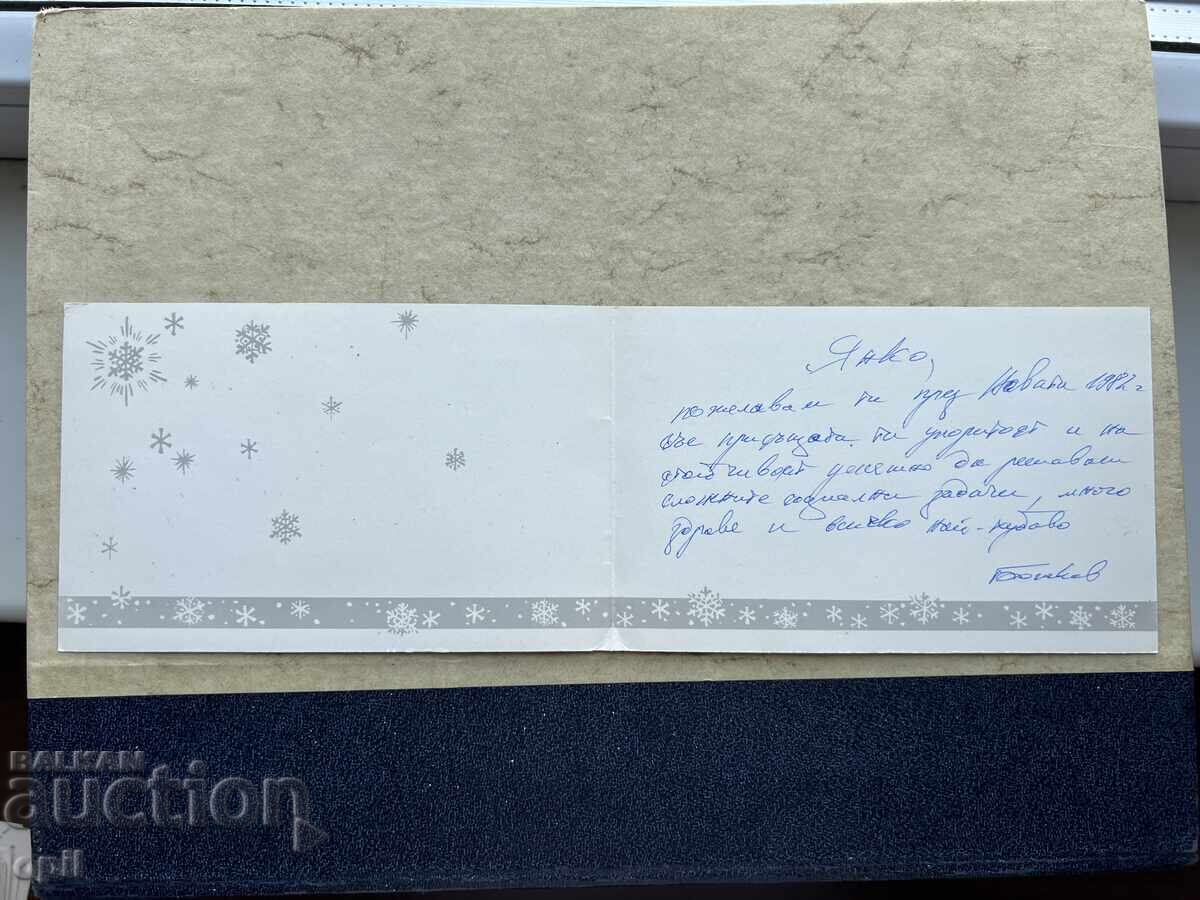 Янко,
пожелавам ти през Новата 1982 г
със присъщата ти упоритост и на
стойчивост успешно да решаваш
сложните социални задачи, много
здраве и всичко най-хубаво
BALKAN
auction
opil